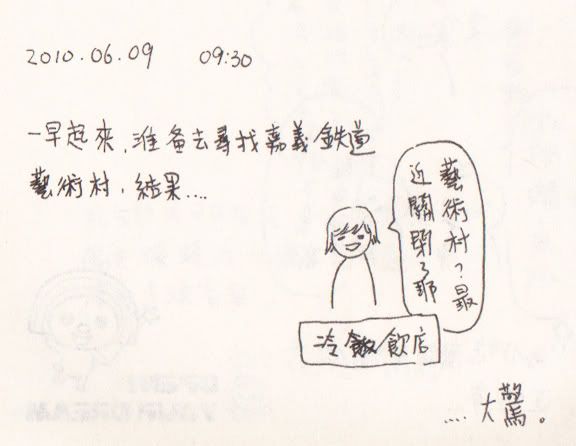 2010.06.09 09:30
一早起來,准备去尋找嘉義鉄道
藝術村,結果....
藝術村?最
近關閉了耶
冷飲店
....大驚。